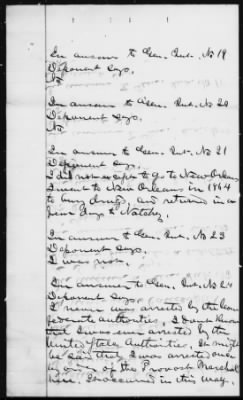 In answer to Gen. Int. No 19
Deponent says,
No
In answer to Gen. Int. No 20
Deponent says,
No
In answer to Gen. Int. No 21
Deponent says,
I did not to go to New Orleans
I went to New Orleans in 1864
to buy drugs, and returned in a
few days to Natchez.
In answer to Gen. Int. No 23
Deponent says,
I was not.
In answer to Gen. Int. No 24
Deponent says,
I never was arrested by the Con
federate authorities, I dont know
that I was ever arrested by the
United States Authorities. It might
be said that I was arrested once
by order of the Provost Marshal
here. It occurred in this way.